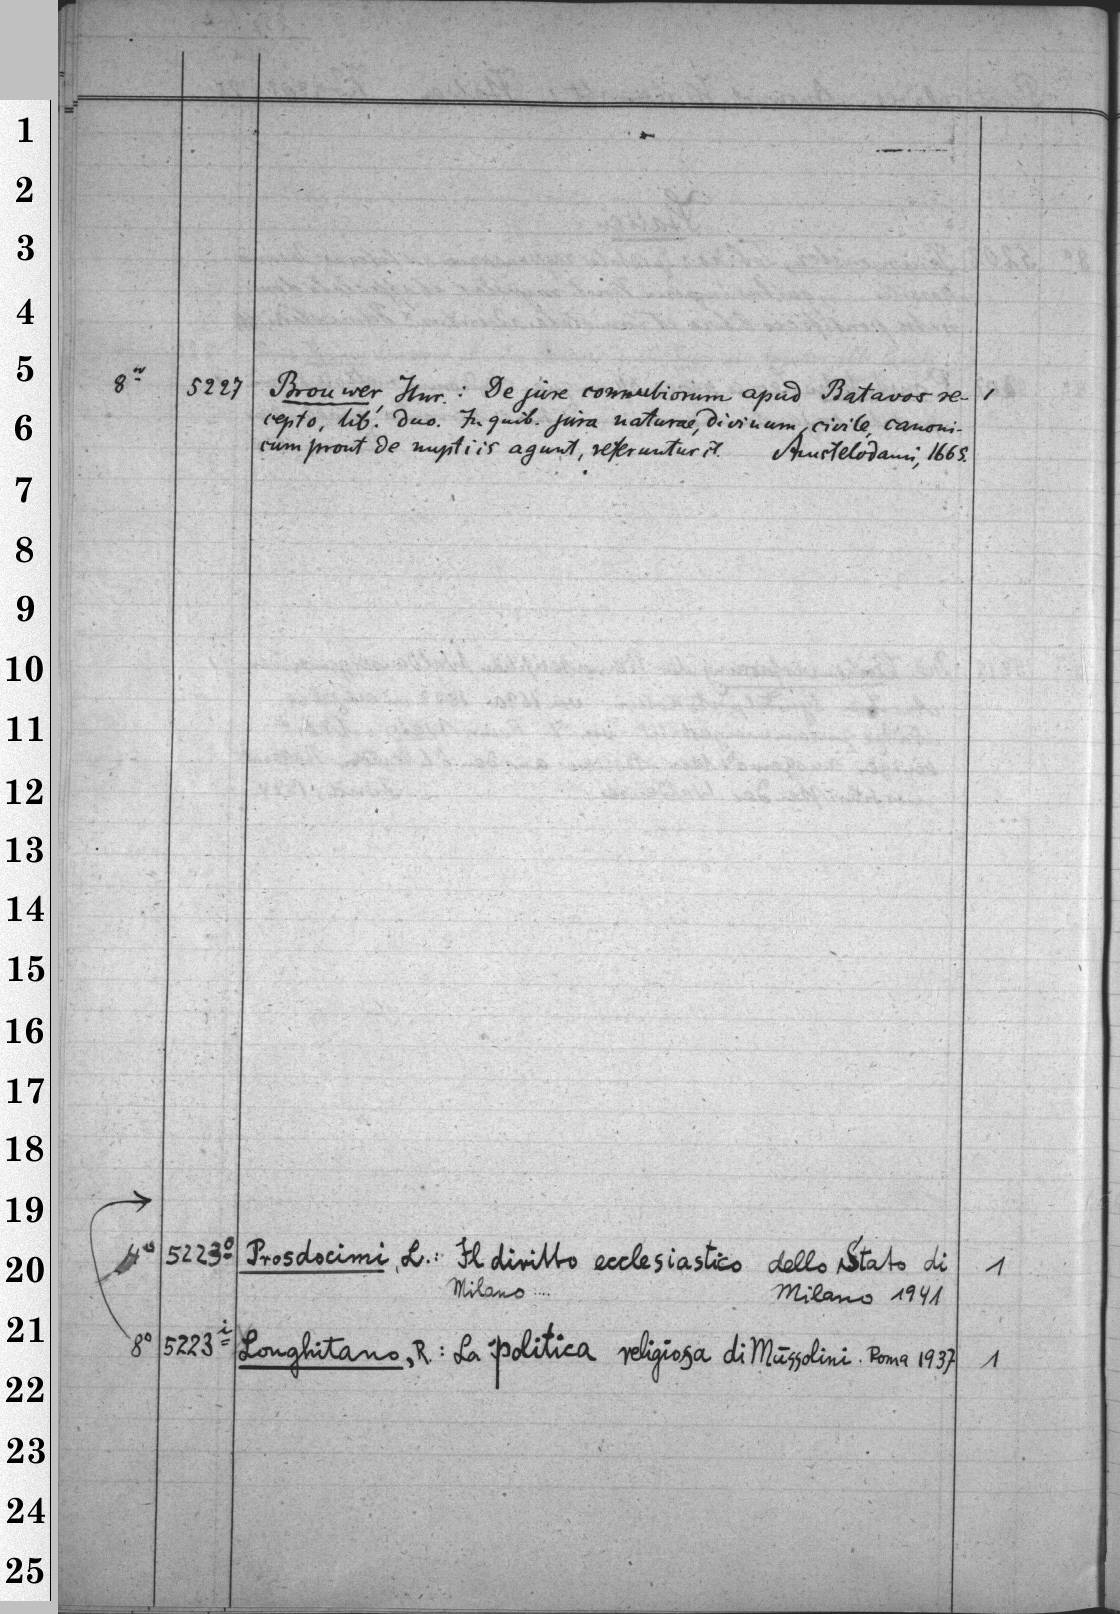 1
2
3
4
5
8º 5227 Brouwer, Hnr.: De jure connubiorum apud Batavos re- 1
6
cepto, lib. duo. In quib. jura naturae, divinum, civile, canoni-
cum prout de nuptiis agunt, referuntur Amstelodami, 1665.
7
8
9
10
11
12
13
14
15
16
17
18
19
20
4º 5223º Prosdocimi, L.: Il diritto ecclesiastico dello Stato di 1
Milano .... Milano 1941
21
8º 5223i Longhitano, R.: La politica religiosa di Mussolini. Roma 1937 1
22
23
24
25